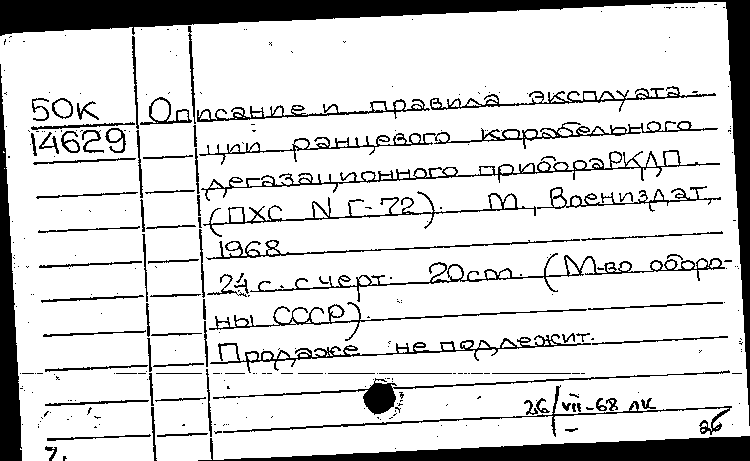 50К
14629
Описание и правила эксплуата-
ции ранцевого корабельного
дегазационного прибора РКДП.
(ПХС N Г-72). М., Воениздат,
1968
24 с. с черт. 20 см. (М-во оборо-
ны СССР).
Продаже не подлежит.
26/VII-68 лк
26
7.